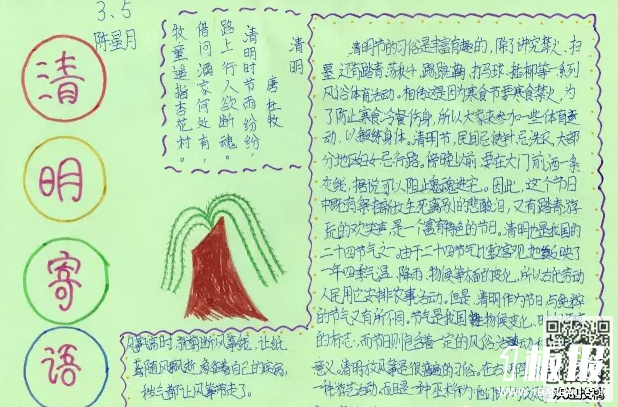 3.5
陈星月
清
明
寄
语
清明
唐 杜牧
清明时节雨纷纷,
路上行人欲断魂。
借问酒家何处有,
牧童遥指杏花村。
清明节的习俗是丰富有趣的,除了讲究禁火、扫
墓,还有踏青、荡秋千、蹴鞠、打马球、插柳等一系列
风俗体育活动。相传这是因为寒食节要寒食禁火,为
了防止寒食冷餐伤身,所以大家来参加一些体育运
动,以锻炼身体。清明节,民间忌使针,忌洗衣,大部
分地区妇女忌行路。傍晚以前,要在大门前洒一条
灰线,据说可以阻止鬼魂进宅。因此,这个节日
中既有祭扫新坟生死离别的悲酸泪,又有踏青游
玩的欢笑声,是一个富有特色的节日。清明也是我国的
二十四节气之一。由于二十四节气比较客观地反映了
一年四季气温、降雨、物候等方面的变化,所以古代劳动
人民用它安排农事活动。但是,清明作为节日,与纯粹
的节气又有所不同。节气是我国物候变化、
的标志,而节日则包含着一定的风俗活动
意义。清明放风筝是很普遍的习俗,在古
一种游艺活动,而且是一种巫术行为,他们
剪断风筝线,让纸
鸢随风飘逝,象征着自己的疾病、
秽气都让风筝带走了。
欢迎投稿